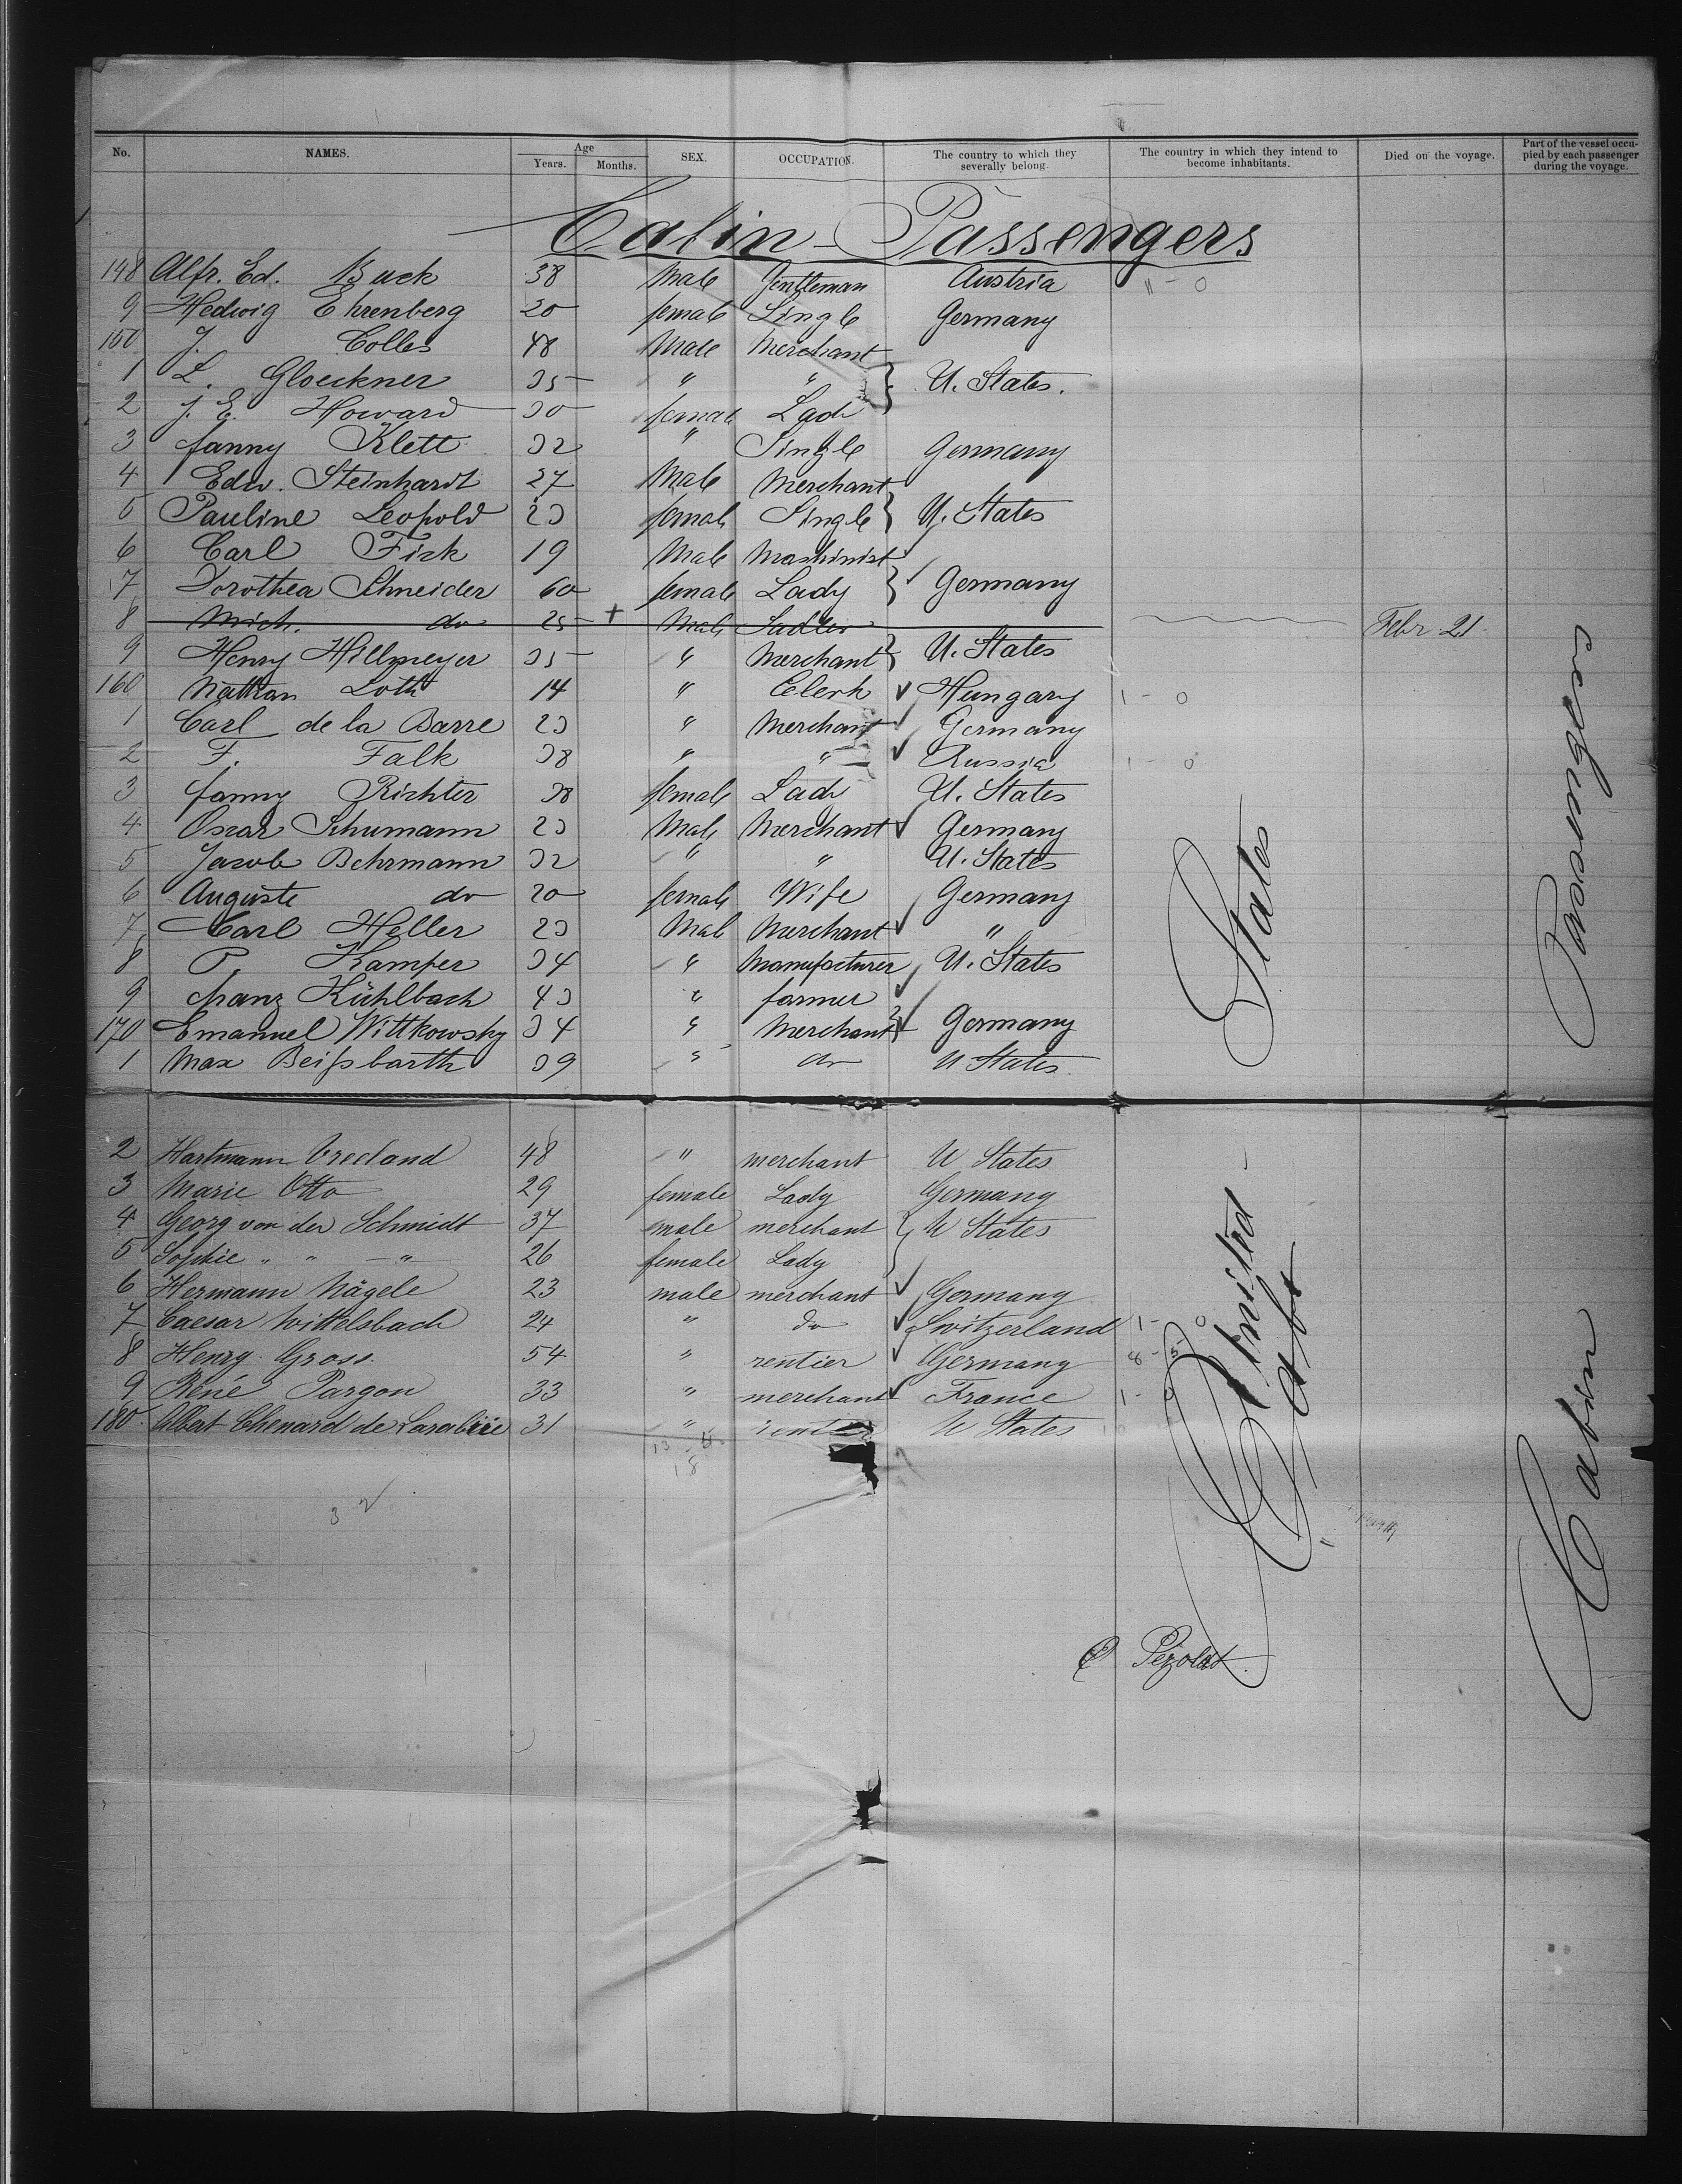 No. NAMES. Age Years. Months. SEX. OCCUPATION. The country to which they severally belong. The country in which they intend to become inhabitants. Died on the voyage. Part of the vessel occupied by each passenger during the voyage.
Cabin-Passengers
148 Alfr. Ed. Buck 38 Male Gentleman Austria 11 - 0
9 Hedwig Ehrenberg 20 female Single Germany
150 J. Colles 48 Male Merchant
1 L. Gloeckner 35 " " } U. States.
2 J. E. Howard 30 female Lady
3 fanny Klett 32 " Single Germany
4 Edw. Steinhardt 27 Male Merchant
5 Pauline Leopold 23 female Single } U. States
6 Carl Fick 19 Male Mashinist
7 Dorothea Schneider 60 female Lady } Germany
8 Mich. do 25 + Male Sadler Febr 21.
9 Henry Hillmeyer 35 " Merchant } U. States
160 Nathan Loth 14 " Clerk Hungary 1 - 0
1 Carl de la Barre 23 " Merchant Germany
2 F. Falk 38 " " Russia 1 - 0
3 fanny Richter 38 female Lady U. States
4 Oscar Schumann 23 Male Merchant Germany
5 Jacob Behrmann 32 " " U. States
6 Auguste do 20 female Wife Germany
7 Carl Heller 23 Male Merchant "
8 P. Kamper 34 " Manufacturer U. States
9 franz Kühlbach 43 " farmer
170 Emanuel Wittkowsky 34 " Merchant } Germany
1 Max Beißbarth 39 " do U States.
2 Hartmann Vreeland 48 " merchant U States
3 Marie Otto 29 female Lady Germany
4 Georg von der Schmidt 37 male merchant } U States
5 Sophie " " " 26 female Lady
6 Hermann Nägele 23 male merchant Germany
7 Caesar Wittelsbach 24 " do Switzerland 1 - 0
8 Henry Gross. 54 " rentier Germany 8 - 5
9 René Pargon 33 " merchant France 1 - 0
180. Albert Chenard de 31 " rentier U States
13 - 5
18
32
United States
C Pezoldt.
Cabin Passengers